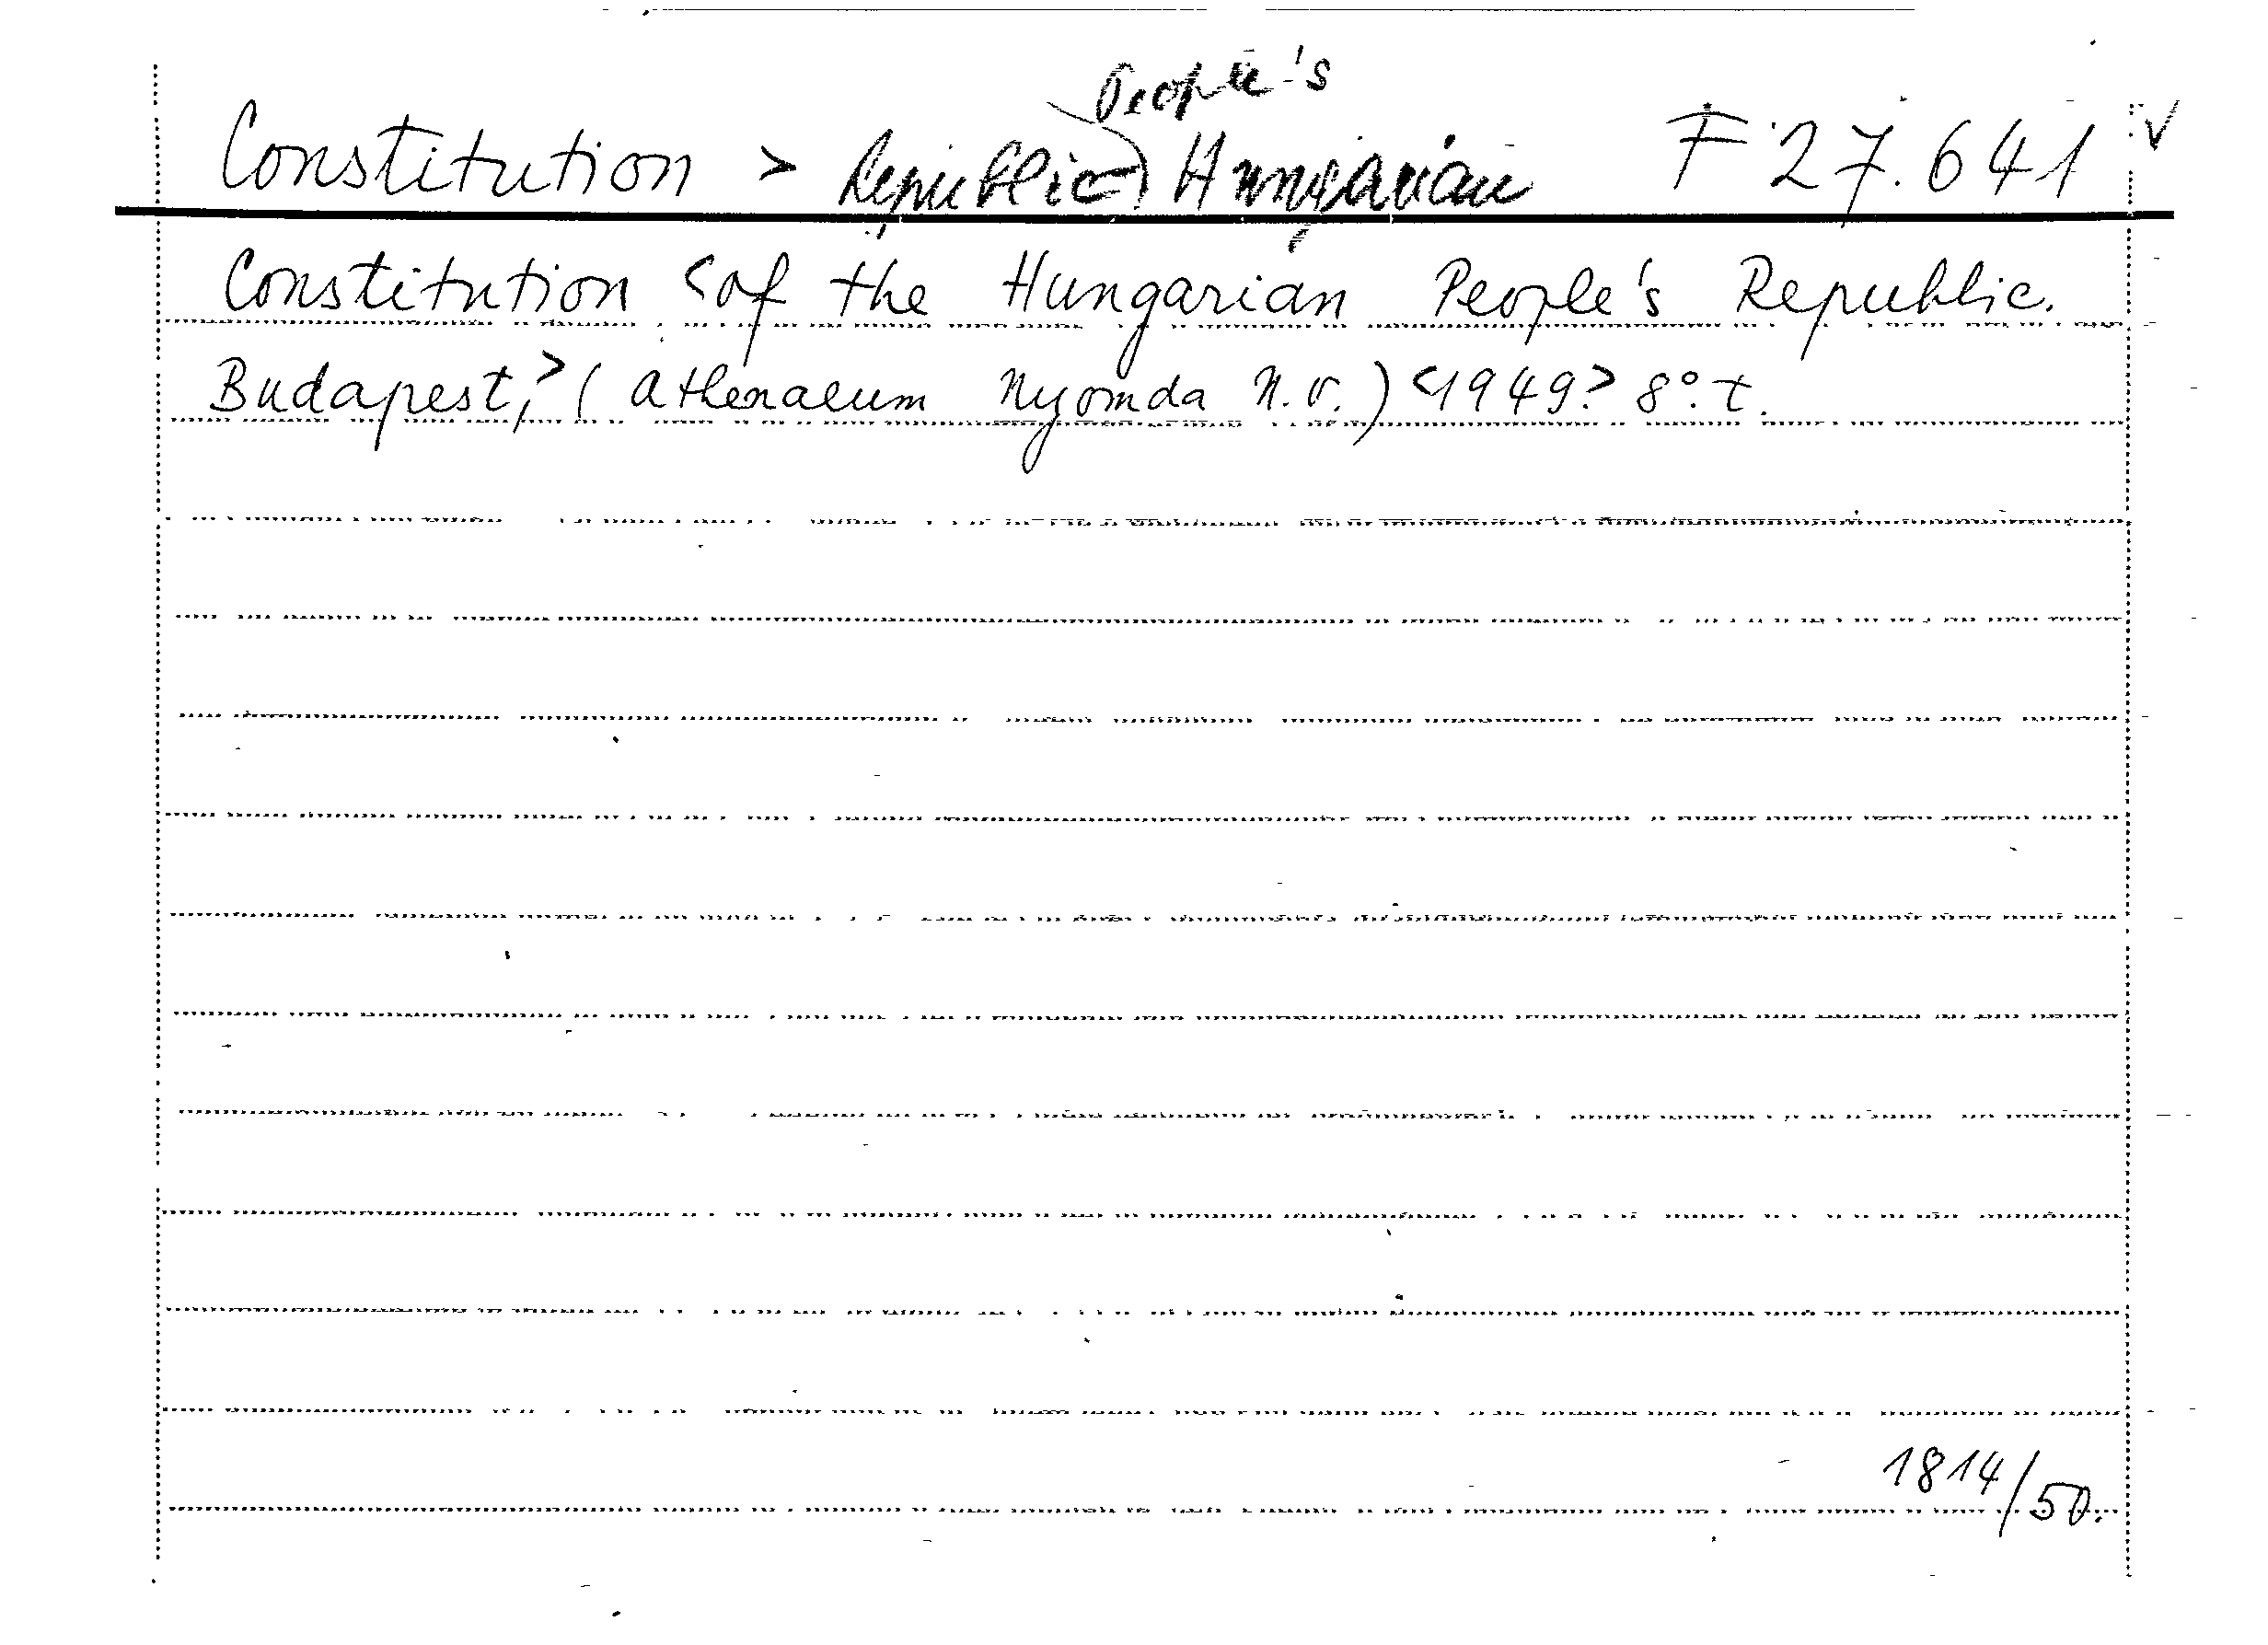 People's
Constitution > Republic Hungarian F 27.641 v
Constitution <of the Hungarian People's Republic.
Budapest,> (Athenaeum Nyomda N.V.) <1949> 8° t.
1814/50.